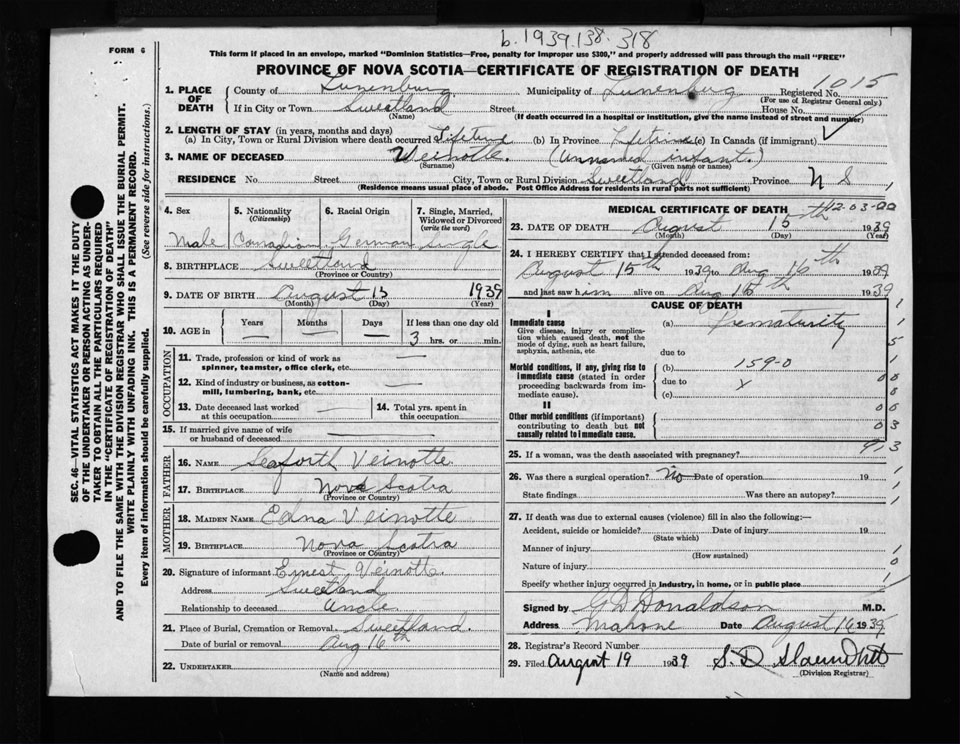 b. 1939.138.318
FORM 6
This form if placed in an envelope, marked "Dominion Statistics—Free, penalty for improper use $300," and properly addressed will pass through the mail "FREE"
PROVINCE OF NOVA SCOTIA—CERTIFICATE OF REGISTRATION OF DEATH
SEC. 46—VITAL STATISTICS ACT MAKES IT THE DUTY
OF THE UNDERTAKER OR PERSON ACTING AS UNDER-
TAKER TO OBTAIN ALL THE PARTICULARS REQUIRED
IN THE "CERTIFICATE OF REGISTRATION OF DEATH"
AND TO FILE THE SAME WITH THE DIVISION REGISTRAR WHO SHALL ISSUE THE BURIAL PERMIT.
WRITE PLAINLY WITH UNFADING INK. THIS IS A PERMANENT RECORD.
Every item of information should be carefully supplied. (See reverse side for instructions.)
1. PLACE OF DEATH County of Lunenburg Municipality of Lunenburg Registered No. 1015
(For use of Registrar General only.)
If in City or Town Sweetland Street House No.
(Name) (If death occurred in a hospital or institution, give the name instead of street and number)
2. LENGTH OF STAY (in years, months and days)
(a) In City, Town or Rural Division where death occurred Lifetime (b) in Province Lifetime (c) In Canada (if immigrant)
3. NAME OF DECEASED Veinotte. (Unnamed infant.)
(Surname) (Given name or names)
RESIDENCE No. Street City, Town or Rural Division Sweetland Province N S
(Residence means usual place of abode. Post Office Address for residents in rural parts not sufficient)
4. Sex 5. Nationality (Citizenship) 6. Racial Origin 7. Single, Married, Widowed or Divorced (write the word)
Male Canadian German Single
8. BIRTHPLACE Sweetland
(Province or Country)
9. DATE OF BIRTH August 15 1939
(Month) (Day) (Year)
10. AGE in Years Months Days If less than one day old
3 hrs. or min.
OCCUPATION
11. Trade, profession or kind of work as spinner, teamster, office clerk, etc.
12. Kind of industry or business, as cotton-mill, lumbering, bank, etc.
13. Date deceased last worked at this occupation 14. Total yrs. spent in this occupation
15. If married give name of wife or husband of deceased
FATHER
16. NAME Seaforth Veinotte.
17. BIRTHPLACE Nova Scotia
(Province or Country)
MOTHER
18. MAIDEN NAME Edna Veinotte
19. BIRTHPLACE Nova Scotia
(Province or Country)
20. Signature of informant Ernest Veinotte.
Address Sweetland
Relationship to deceased Uncle
21. Place of Burial, Cremation or Removal Sweetland.
Date of burial or removal Aug 16th
22. UNDERTAKER
(Name and address)
MEDICAL CERTIFICATE OF DEATH
23. DATE OF DEATH August 15th 1939
(Month) (Day) (Year)
24. I HEREBY CERTIFY that I attended deceased from:
August 15th 1939 to Aug 16th 1939
and last saw him alive on Aug 15th 1939
CAUSE OF DEATH
I
Immediate cause (a) Prematurity
Give disease, injury or complication which caused death, not the mode of dying, such as heart failure, asphyxia, asthenia, etc
due to
Morbid conditions, if any, giving rise to immediate cause (stated in order proceeding backwards from immediate cause).
(b) 159-0
due to
(c)
II
Other morbid conditions (if important) contributing to death but not causally related to immediate cause.
25. If a woman, was the death associated with pregnancy?
26. Was there a surgical operation? No Date of operation 19
State findings Was there an autopsy?
27. If death was due to external causes (violence) fill in also the following:—
Accident, suicide or homicide? Date of injury 19
(State which)
Manner of injury
(How sustained)
Nature of injury
Specify whether injury occurred in industry, in home, or in public place
Signed by G D Donaldson M.D.
Address Mahone Date August 16 1939
28. Registrar's Record Number
29. Filed August 19 1939
(Division Registrar)